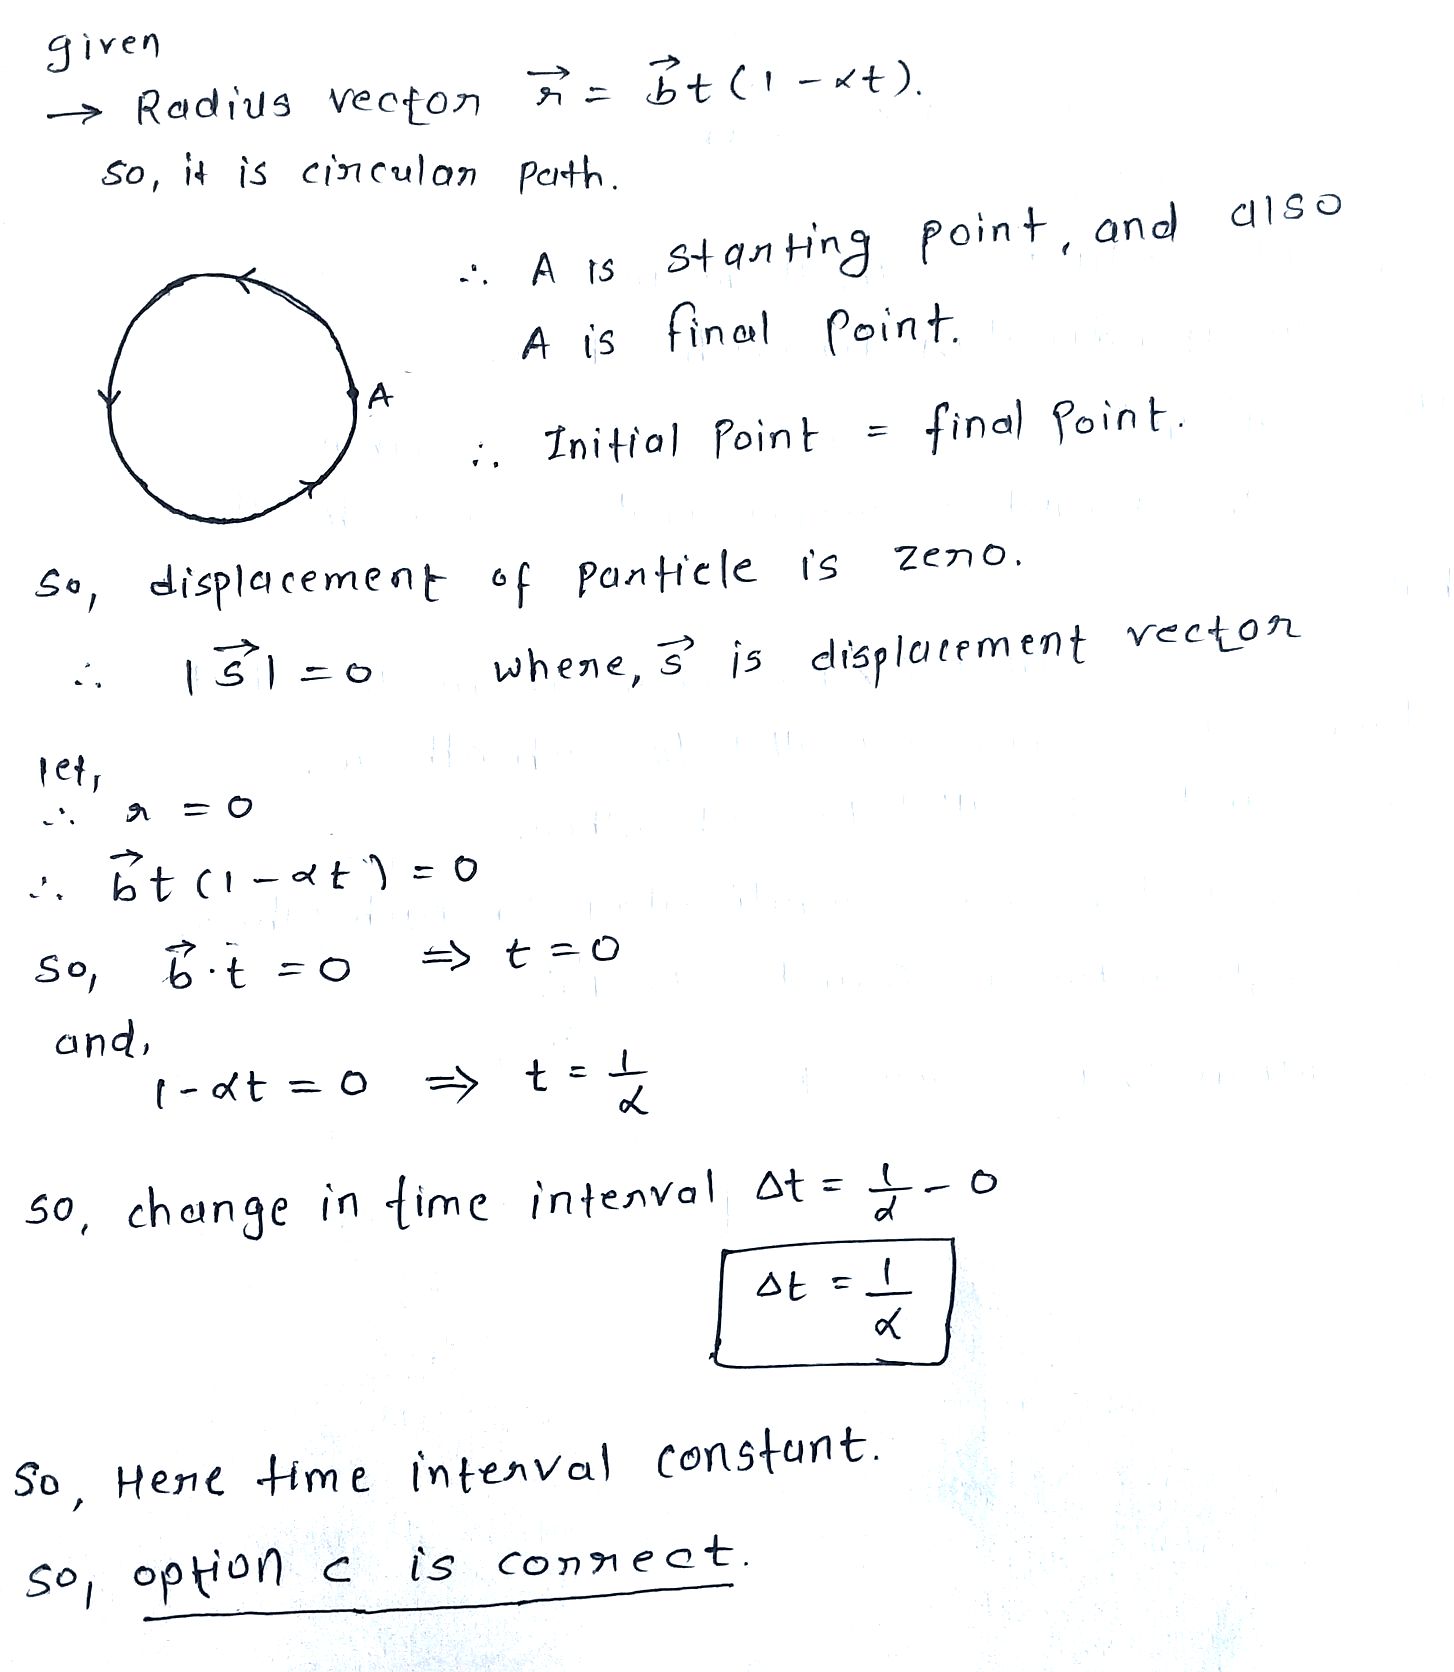 given
→ Radius vector r⃗ = b⃗t(1-αt).
so, it is circular path.
∴ A is starting point, and also
A is final point.
A
∴ Initial Point = final Point.
so, displacement of particle is zero.
∴ |s⃗| = 0 where, s⃗ is displacement vector
let,
∴ r = 0
∴ b⃗t(1-αt) = 0
so, b⃗·t = 0 ⇒ t = 0
and,
1-αt = 0 ⇒ t = 1/α
so, change in time interval Δt = 1/α - 0
Δt = 1/α
So, Here time interval constant.
so, option c is correct.